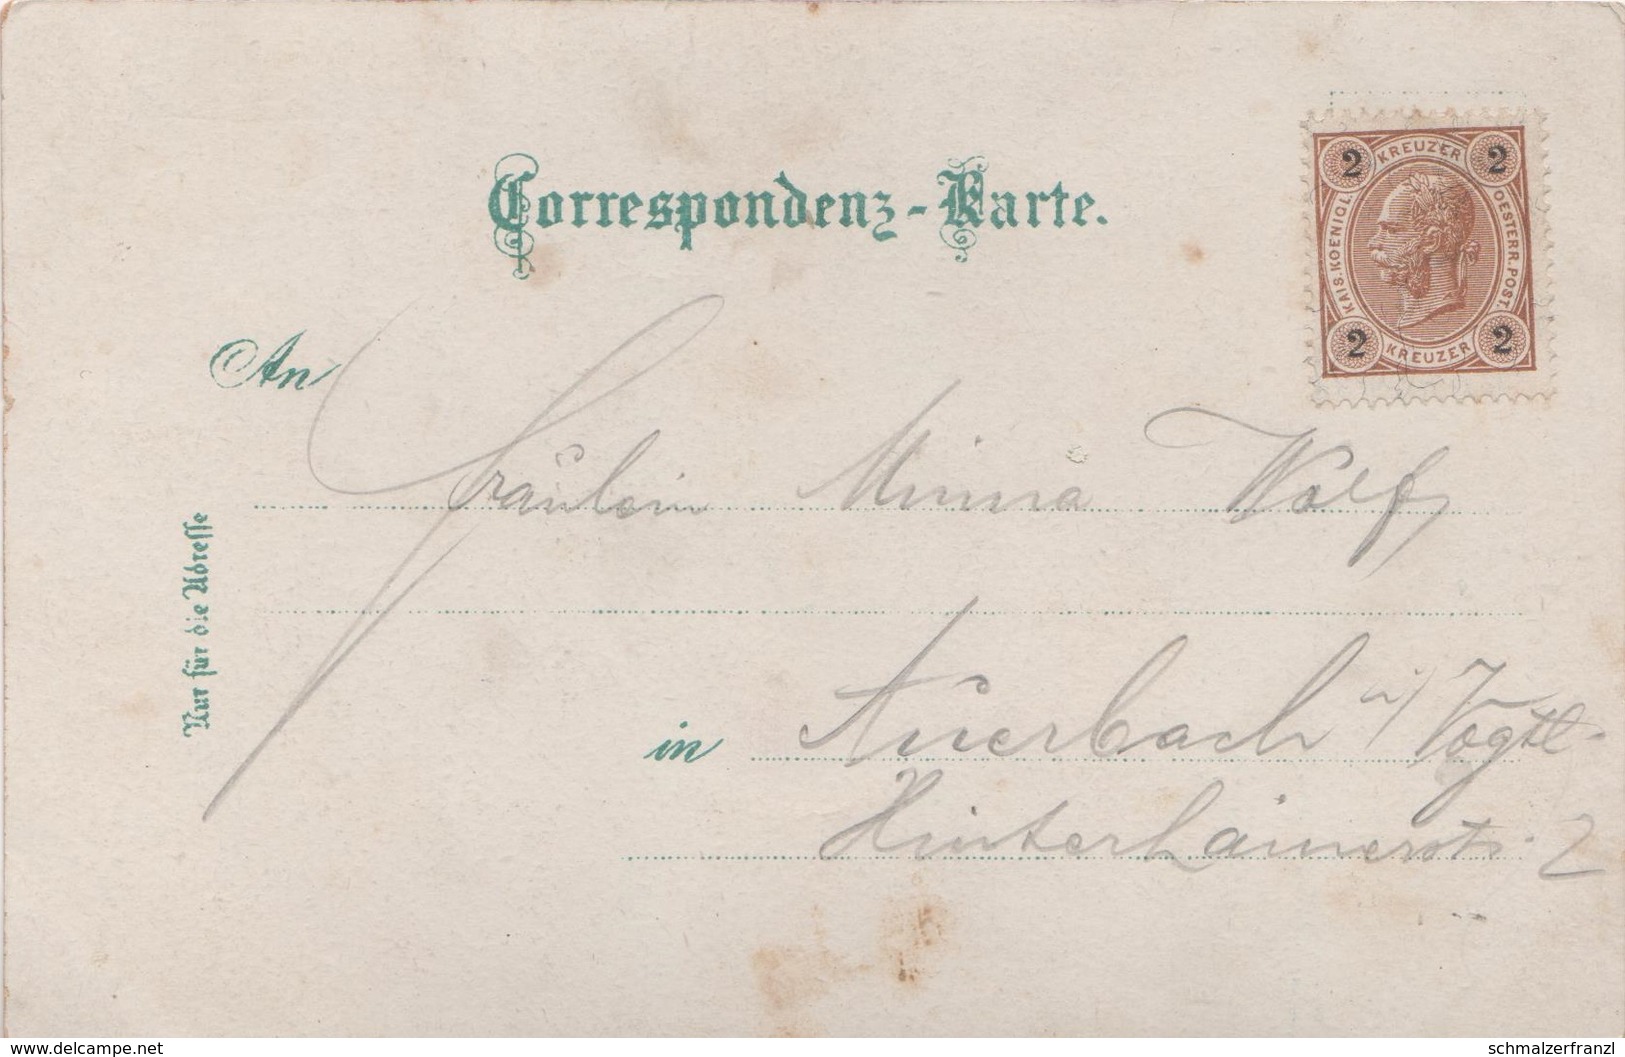 Correspondenz-Karte.
2 KREUZER 2
KAIS. KOENIGL. OESTERR. POST.
2 KREUZER 2
An
Fräulein Minna Wolf
Nur für die Adresse
in Auerbach i/ Vogtl.
Hinterhainerstr. 2
www.delcampe.net
schmalzerfranzl